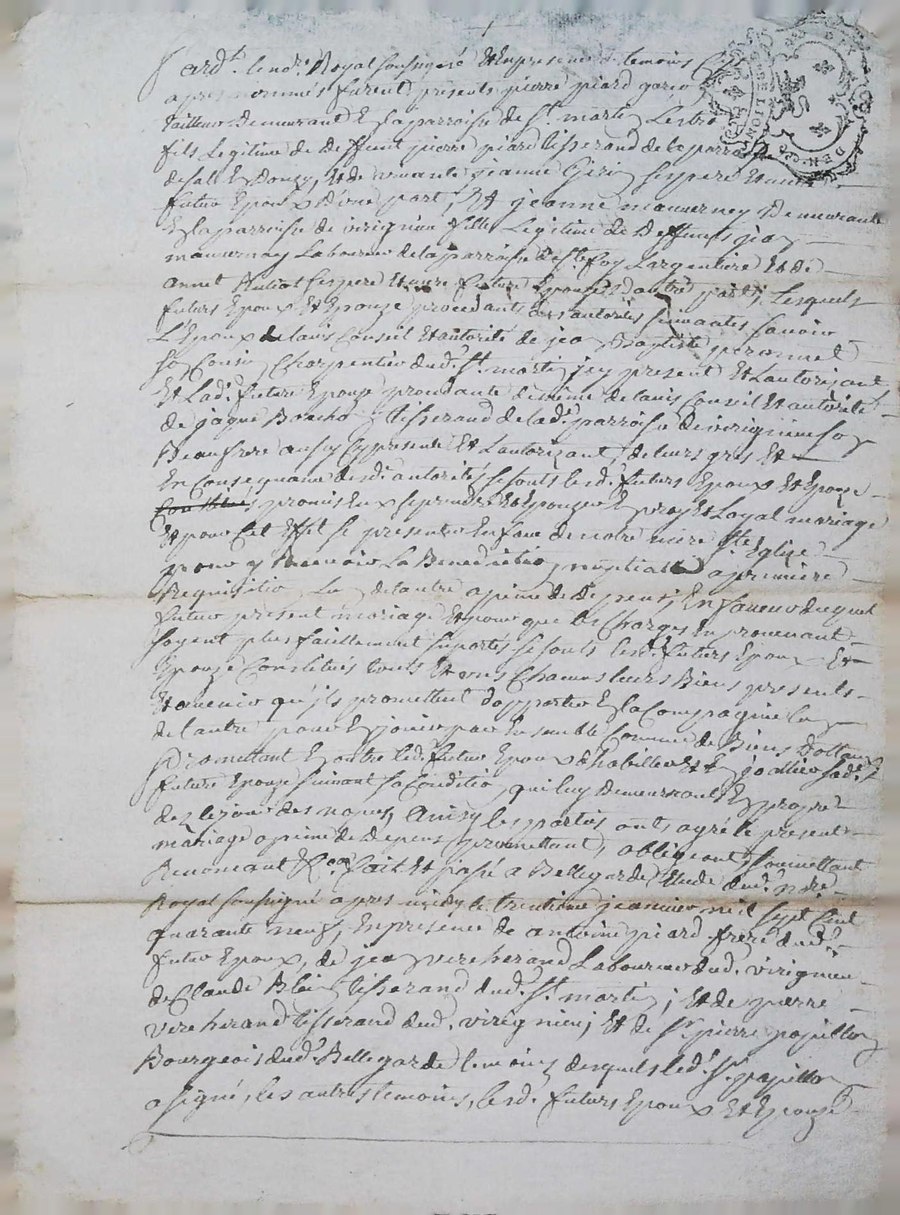 Pardt. le nore. Royal soussigné Et En presence des temoins
apres nommés furent presents pierre piard garçon
tailleur Demeurant En la parroisse de St. martin Lestra
fils Legitime de Deffunt pierre piard tisserand de la parroisse
de salt En Donzy, Et de vivante jeanne Giri ses pere Et mere
futur Epoux D'une part, Et jeanne mauverney Demeurante
En la parroisse de virignieu fille Legitime de Deffunts jean
mauvernay Laboureur de la parroisse de Ste. foy Largentiere Et de
annet ses pere Et mere future Epouze D'autre part, Lesquels
futurs Epoux Et Epouze procedants des autorités suivantes sçavoir
L'Epoux de l'avis Conseil Et autorité de jean Baptiste peronnel
son Cousin Charpentier dud. St. martin jcy present Et L'autorisant
Et Lad. future Epouze procedante de même de l'avis Conseil Et autorité
de jaque tisserand de lad. parroisse de virignieu son
Beaufrere aussy cy present Et L'autorizant, de leurs grés Et
En Consequance desd. autorités se sonts lesd. futurs Epoux Et Epouze
promis Entx se prendre Et Epouzer En vray Et Loyal mariage
Et pour Cet Effet se presenter En face de notre mere Ste. Eglise
pour y Recevoir La Benediction nuptialle a premiere
Requisition Lun de lautre a peine de Depens, En faveur duquel
futur present mariage Et pour que les Charges En provenant
soyent plus faillement suportés se sonts lesd. futurs Epoux Et
Epouze Constitués touts Et uns Chacuns leurs Biens presents
Et avenir qu'ils promettent d'apporter En la Compagnie lun
de lautre pour En jouir par Ensemble Comme de Biens Dottaux
Promettant En outre led. futur Epoux d'habiller Et En joallier sad.
future Epouze suivant sa Condition, qui luy Demeureront En propre
dez le jour des nopces, Ainsy les parties onts agréé le present
mariage a peine de Depens promettant, obligeant, soumettant
Renoncant &ca. fait Et passé a Bellegarde Etude dud. nore.
Royal soussigné apres midy le trentieme jeanvier mil sept Cent
quarante neuf, En presence de antoine piard frere dud.
futur Epoux, de jean vereherand Laboureur dud. virignieu
de Claude Blain tisserand dud. St. martin; Et de pierre
vereherand tisserand dud. virignieu; Et de Sr. pierre papillon
Bourgeois dud. Bellegarde temoins desquels led. Sr. papillon
a signé, les autres temoins, lesd. futurs Epoux Et Epouze